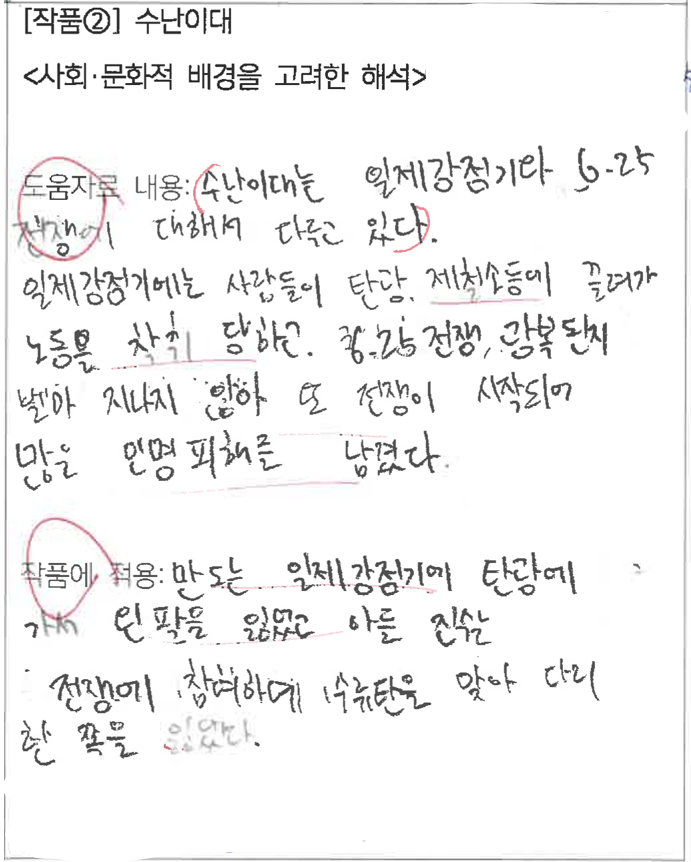 [작품②] 수난이대
<사회·문화적 배경을 고려한 해석>
도움자료 내용: 수난이대는 일제강점기와 6.25
전쟁에 대해서 다루고 있다.
일제강점기에는 사람들이 탄광, 제철소등에 끌려가
노동을 착취 당하고. 6.25 전쟁, 광복된지
벌마 지나지 않아 또 전쟁이 시작되어
많은 인명피해를 남겼다.
작품에 적용: 만도는 일제강점기에 탄광에
가서 왼팔을 잃었고 아들 진수는
전쟁에 참여하데 수류탄을 맞아 다리
한 쪽을 잃었다.